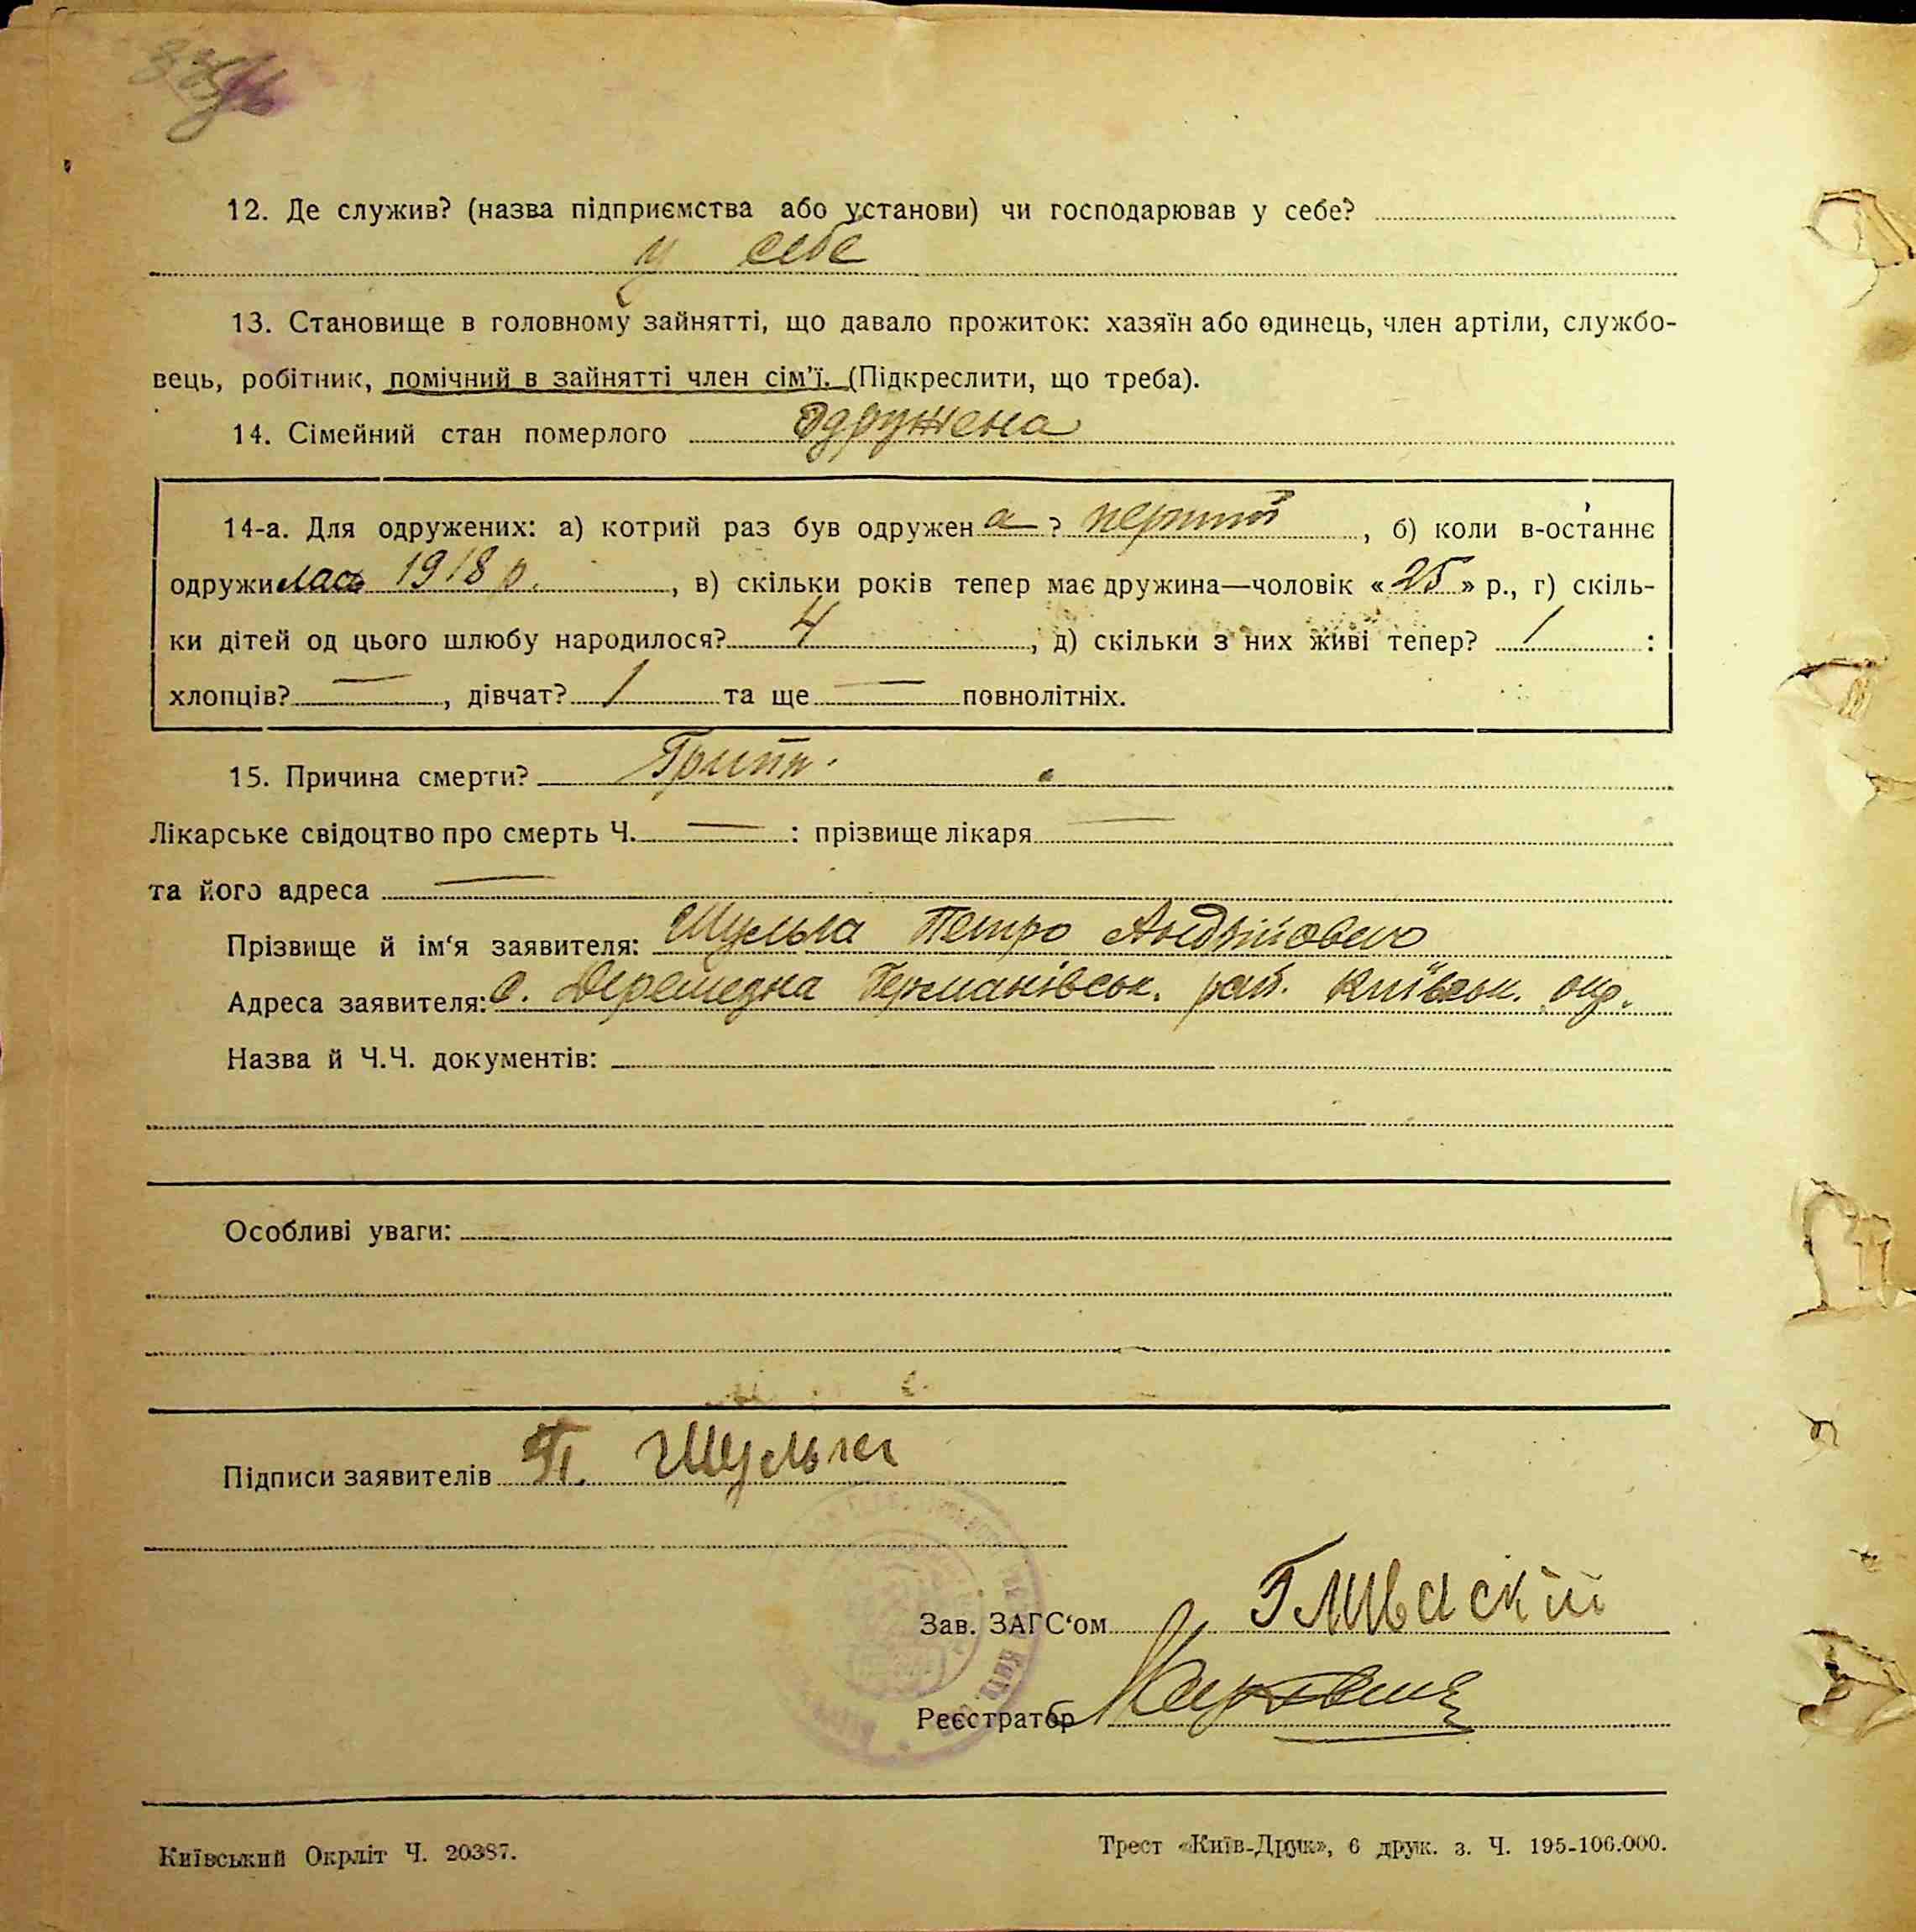 12. Де служив? (назва підприємства або установи) чи господарював у себе?
у себе
13. Становище в головному зайнятті, що давало прожиток: хазяїн або одинець, член артіли, службо-
вець, робітник, помічний в зайнятті член сім'ї. (Підкреслити, що треба).
14. Сімейний стан померлого одружена
14-а. Для одружених: а) котрий раз був одружен а ? перший, б) коли в-останнє
одружилась 1918 р., в) скільки років тепер має дружина—чоловік «25» р., г) скіль-
ки дітей од цього шлюбу народилося? 4, д) скільки з них живі тепер? 1 :
хлопців? —, дівчат? 1 та ще — повнолітніх.
15. Причина смерти? Грипп.
Лікарське свідоцтво про смерть Ч. — : прізвище лікаря —
та його адреса —
Прізвище й ім'я заявителя: Шульга Петро Андрійович
Адреса заявителя: с. Деремезна Германівськ. рай. Київськ. окр.
Назва й Ч.Ч. документів:
Особливі уваги:
Підписи заявителів П. Шульга
Зав. ЗАГС'ом
Реєстратор
Київський Окрліт Ч. 20387.
Трест «Київ-Друк», 6 друк. з. Ч. 195-106.000.